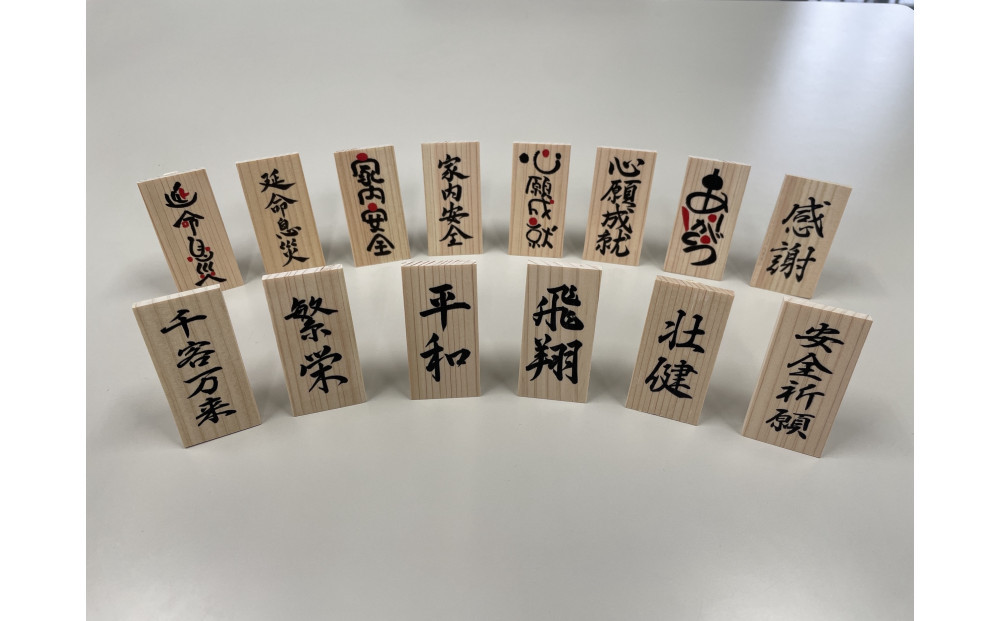 延命息災
延命息災
家内安全
家内安全
心願成就
心願成就
ありがとう
感謝
千客万来
繁栄
平和
飛翔
壮健
安全祈願